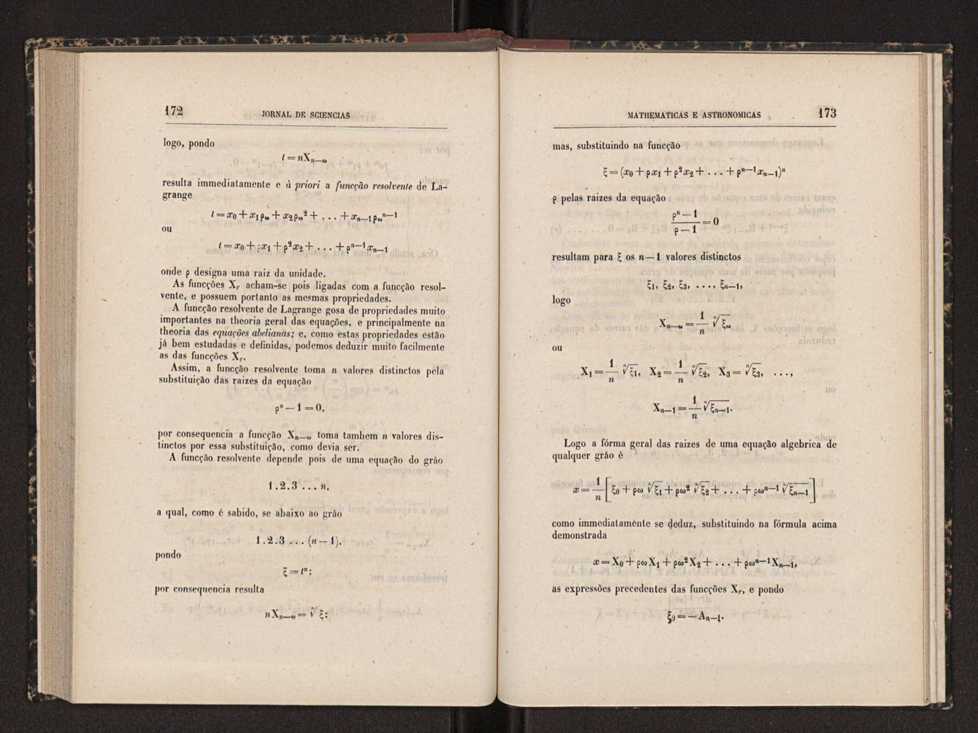 172 JORNAL DE SCIENCIAS
logo, pondo
t = nXₙ₋ω
resulta immediatamente e à priori a funcção resolvente de La-
grange
t = x₀ + x₁ρω + x₂ρω² + . . . + xₙ₋₁ρωⁿ⁻¹
ou
t = x₀ + ρx₁ + ρ²x₂ + . . . + ρⁿ⁻¹xₙ₋₁
onde ρ designa uma raiz da unidade.
As funcções Xᵣ acham-se pois ligadas com a funcção resol-
vente, e possuem portanto as mesmas propriedades.
A funcção resolvente de Lagrange gosa de propriedades muito
importantes na theoria geral das equações, e principalmente na
theoria das equações abelianas; e, como estas propriedades estão
já bem estudadas e definidas, podemos deduzir muito facilmente
as das funcções Xᵣ.
Assim, a funcção resolvente toma n valores distinctos pela
substituição das raizes da equação
ρⁿ — 1 = 0,
por consequencia a funcção Xₙ₋ω toma tambem n valores dis-
tinctos por essa substituição, como devia ser.
A funcção resolvente depende pois de uma equação do gráo
1 . 2 . 3 . . . n,
a qual, como é sabido, se abaixo ao gráo
1 . 2 . 3 . . . (n — 1),
pondo
ξ = tⁿ;
por consequencia resulta
nXₙ₋ω = ⁿ√ξ;
MATHEMATICAS E ASTRONOMICAS 173
mas, substituindo na funcção
ξ = (x₀ + ρx₁ + ρ²x₂ + . . . + ρⁿ⁻¹xₙ₋₁)ⁿ
ρ pelas raizes da equação
(ρⁿ — 1)/(ρ — 1) = 0
resultam para ξ os n — 1 valores distinctos
ξ₁, ξ₂, ξ₃, . . . , ξₙ₋₁,
logo
Xₙ₋ω = 1/n ⁿ√ξω
ou
X₁ = 1/n ⁿ√ξ₁, X₂ = 1/n ⁿ√ξ₂, X₃ = ⁿ√ξ₃, . . . ,
Xₙ₋₁ = 1/n ⁿ√ξₙ₋₁.
Logo a fórma geral das raizes de uma equação algebrica de
qualquer gráo é
x = 1/n [ξ₀ + ρω ⁿ√ξ₁ + ρω² ⁿ√ξ₂ + . . . + ρωⁿ⁻¹ ⁿ√ξₙ₋₁]
como immediatamente se deduz, substituindo na fórmula acima
demonstrada
x = X₀ + ρωX₁ + ρω²X₂ + . . . + ρωⁿ⁻¹Xₙ₋₁,
as expressões precedentes das funcções Xᵣ, e pondo
ξ₀ = — Aₙ₋₁.